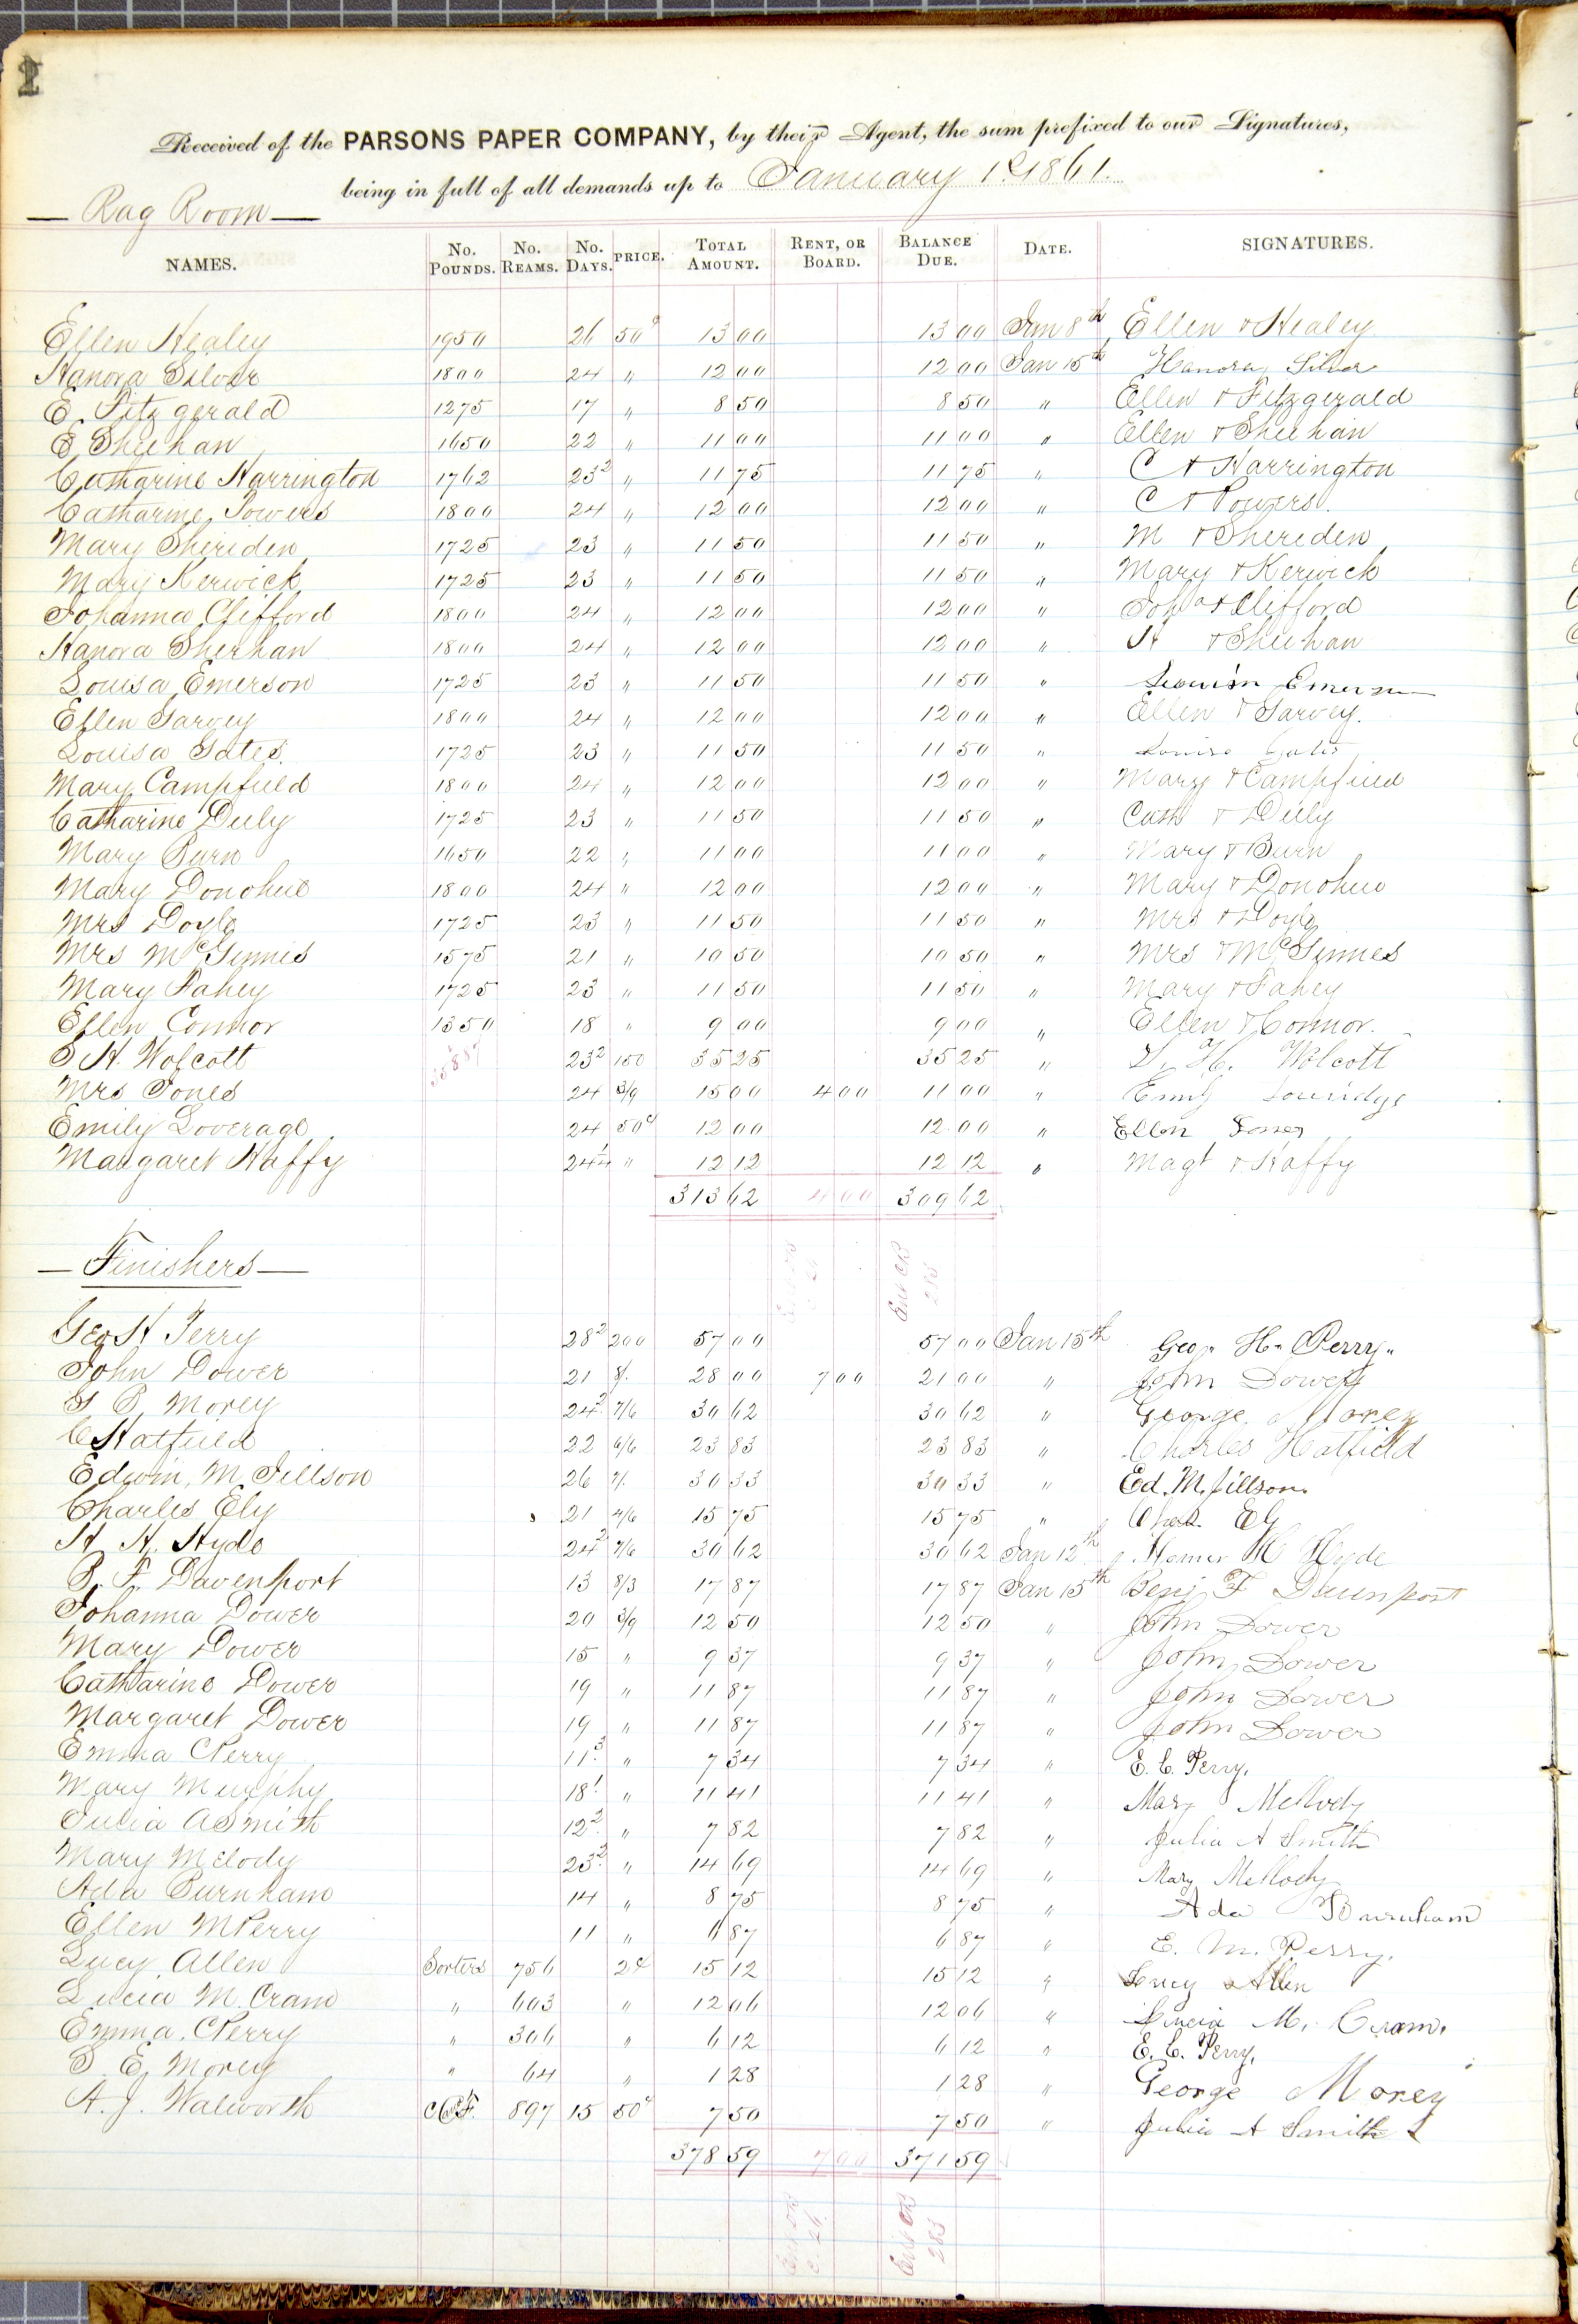 1
Received of the PARSONS PAPER COMPANY, by their Agent, the sum prefixed to our Signatures,
being in full of all demands up to January 1st 1861.
— Rag Room —
NAMES. No. Pounds. No. Reams. No. Days. Price. Total Amount. Rent, or Board. Balance Due. Date. SIGNATURES.
Ellen Healey 1950 26 50c 13 00 13 00 Jan 8th Ellen + Healey
Hanora Silver 1800 24 " 12 00 12 00 Jan 15th Hanora Silver
E. Fitzgerald 1275 17 " 8 50 8 50 " Ellen + Fitzgerald
E Sheehan 1650 22 " 11 00 11 00 " Ellen + Sheehan
Catharine Harrington 1762 23 2 " 11 75 11 75 " C + Harrington
Catharine Powers 1800 24 " 12 00 12 00 " C + Powers.
Mary Sheriden 1725 23 " 11 50 11 50 " M + Shereden
Mary Kerwick 1725 23 " 11 50 11 50 " Mary + Kerwick
Johanna Clifford 1800 24 " 12 00 12 00 " Joha + Clifford
Hanora Sheehan 1800 24 " 12 00 12 00 " H + Sheehan
Louisa Emerson 1725 23 " 11 50 11 50 " Louisa Emerson
Ellen Garvey 1800 24 " 12 00 12 00 " Ellen + Garvey.
Louisa Gates. 1725 23 " 11 50 11 50 " Louisa Gates
Mary Campfield 1800 24 " 12 00 12 00 " Mary + Campfield
Catharine Duly 1725 23 " 11 50 11 50 " Cath + Duly
Mary Burn 1650 22 " 11 00 11 00 " Mary + Burn
Mary Donohue 1800 24 " 12 00 12 00 " Mary + Donohue
Mrs Doyle 1725 23 " 11 50 11 50 " Mrs + Doyle
Mrs McGinnis 1575 21 " 10 50 10 50 " Mrs + McGinnes
Mary Fahey 1725 23 " 11 50 11 50 " Mary + Fahey
Ellen Connor 1350 18 " 9 00 9 00 " Ellen + Connor.
S H. Wolcott 35887 23 2 150 35 25 35 25 " S. H. Wolcott
Mrs Jones 24 3/9 15 00 4 00 11 00 " Emily
Emily Loverage 24 50c 12 00 12 00 " Ellen Jones
Margaret Haffy 24 1/4 " 12 12 12 12 " Magt + Haffy
313 62 4 00 309 62
— Finishers —
Ent CB 285
Geo H Perry 28 2 200 57 00 57 00 Jan 15th Geo. H. Perry.
John Dower 21 8/. 28 00 7 00 21 00 " John Dower
G B Morey 24 2 7/6 30 62 30 62 " George Morey
C Hatfield 22 6/6 23 83 23 83 " Charles Hatfield
Edwin, M, Jillson 26 7/. 30 33 30 33 " Ed. M. Jillson.
Charles Ely 21 4/6 15 75 15 75 " Chas. Ely
H H. Hyde 24 2 7/6 30 62 30 62 Jan 12th Homer H Hyde
B. F. Davenport 13 8/3 17 87 17 87 Jan 15th Benj F Davenport
Johanna Dower 20 3/9 12 50 12 50 " John Dower
Mary Dower 15 " 9 37 9 37 " John Dower
Catharine Dower 19 " 11 87 11 87 " John Dower
Margaret Dower 19 " 11 87 11 87 " John Dower
Emma C Perry 11 3 " 7 34 7 34 " E. C. Perry.
Mary Murphy 18 1 " 11 41 11 41 " Mary Mellody
Julia A Smith 12 2 " 7 82 7 82 " Julia A Smith
Mary Melody 23 2 " 14 69 14 69 " Mary Mellody
Ada Burnham 14 " 8 75 8 75 " Ada Burnham
Ellen M Perry 11 " 6 87 6 87 " E. M. Perry.
Lucy Allen Sorters 756 2c 15 12 15 12 " Lucy Allen
Lucia M. Cram " 603 " 12 06 12 06 " Lucia M. Cram.
Emma. C Perry " 306 " 6 12 6 12 " E. C. Perry.
S. E. Morey " 64 " 1 28 1 28 " George Morey
A. J. Walworth 897 15 50c 7 50 7 50 " Julia A Smith
378 59 7 00 371 59
Ent CB 283